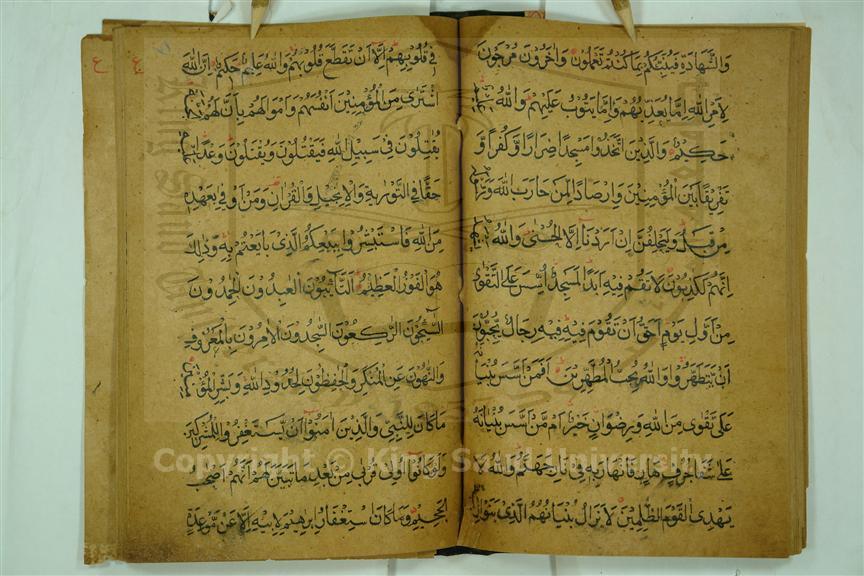 وَالشَّهَادَةِ فَيُنَبِّئُكُمْ بِمَا كُنْتُمْ تَعْمَلُونَ وَاٰخَرُونَ مُرْجَوْنَ
لِاَمْرِ اللهِ اِمَّا يُعَذِّبُهُمْ وَاِمَّا يَتُوبُ عَلَيْهِمْ وَاللهُ عَلِيمٌ
حَكِيمٌ وَالَّذِينَ اتَّخَذُوا مَسْجِدًا ضِرَارًا وَّكُفْرًا وَّ
تَفْرِيقًا بَيْنَ الْمُؤْمِنِينَ وَاِرْصَادًا لِّمَنْ حَارَبَ اللهَ وَرَسُولَهُ
مِنْ قَبْلُ وَلَيَحْلِفُنَّ اِنْ اَرَدْنَا اِلَّا الْحُسْنٰى وَاللهُ يَشْهَدُ
اِنَّهُمْ لَكٰذِبُونَ لَا تَقُمْ فِيهِ اَبَدًا لَمَسْجِدٌ اُسِّسَ عَلَى التَّقْوٰى
مِنْ اَوَّلِ يَوْمٍ اَحَقُّ اَنْ تَقُومَ فِيهِ فِيهِ رِجَالٌ يُّحِبُّونَ
اَنْ يَّتَطَهَّرُوا وَاللهُ يُحِبُّ الْمُطَّهِّرِينَ اَفَمَنْ اَسَّسَ بُنْيَانَهُ
عَلٰى تَقْوٰى مِنَ اللهِ وَرِضْوَانٍ خَيْرٌ اَمْ مَّنْ اَسَّسَ بُنْيَانَهُ
عَلٰى شَفَا جُرُفٍ هَارٍ فَانْهَارَ بِهِ فِي نَارِ جَهَنَّمَ وَاللهُ لَا
يَهْدِى الْقَوْمَ الظّٰلِمِينَ لَا يَزَالُ بُنْيَانُهُمُ الَّذِي بَنَوْا رِيبَةً
فِي قُلُوبِهِمْ اِلَّا اَنْ تَقَطَّعَ قُلُوبُهُمْ وَاللهُ عَلِيمٌ حَكِيمٌ اِنَّ اللهَ
اشْتَرٰى مِنَ الْمُؤْمِنِينَ اَنْفُسَهُمْ وَاَمْوَالَهُمْ بِاَنَّ لَهُمُ الْجَنَّةَ
يُقَاتِلُونَ فِي سَبِيلِ اللهِ فَيَقْتُلُونَ وَيُقْتَلُونَ وَعْدًا عَلَيْهِ
حَقًّا فِي التَّوْرٰىةِ وَالْاِنْجِيلِ وَالْقُرْاٰنِ وَمَنْ اَوْفٰى بِعَهْدِهِ
مِنَ اللهِ فَاسْتَبْشِرُوا بِبَيْعِكُمُ الَّذِي بَايَعْتُمْ بِهِ وَذٰلِكَ
هُوَ الْفَوْزُ الْعَظِيمُ التَّآئِبُونَ الْعٰبِدُونَ الْحٰمِدُونَ
السَّآئِحُونَ الرّٰكِعُونَ السّٰجِدُونَ الْاٰمِرُونَ بِالْمَعْرُوفِ
وَالنَّاهُونَ عَنِ الْمُنْكَرِ وَالْحٰفِظُونَ لِحُدُودِ اللهِ وَبَشِّرِ الْمُؤْمِنِينَ
مَا كَانَ لِلنَّبِيِّ وَالَّذِينَ اٰمَنُوا اَنْ يَّسْتَغْفِرُوا لِلْمُشْرِكِينَ
وَلَوْ كَانُوا اُولِي قُرْبٰى مِنْ بَعْدِ مَا تَبَيَّنَ لَهُمْ اَنَّهُمْ اَصْحٰبُ
الْجَحِيمِ وَمَا كَانَ اسْتِغْفَارُ اِبْرٰهِيمَ لِاَبِيهِ اِلَّا عَنْ مَّوْعِدَةٍ
Copyright © King Saud University